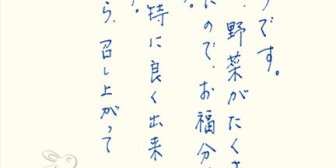 うです。
、野菜がたくさ
たので、お福分
。特に良く出来
ら、召し上がって